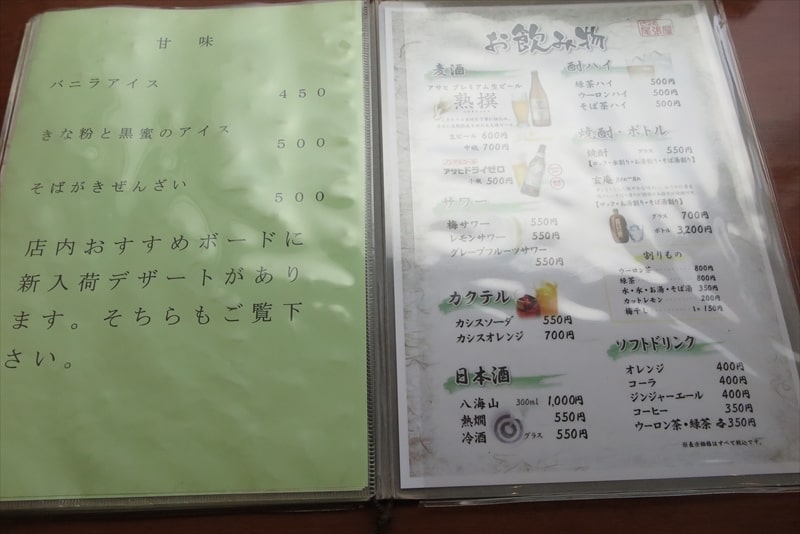 甘味
バニラアイス 450
きな粉と黒蜜のアイス 500
そばがきぜんざい 500
店内おすすめボードに
新入荷デザートがあり
ます。そちらもご覧下
さい。
お飲み物
尾張屋
麦酒
アサヒプレミアム生ビール
熟撰
生ビール 600円
中瓶 700円
アサヒドライゼロ
小瓶 500円
サワー
梅サワー 550円
レモンサワー 550円
グレープフルーツサワー
550円
カクテル
カシスソーダ 550円
カシスオレンジ 700円
日本酒
八海山 300ml 1,000円
熱燗 550円
冷酒 グラス 550円
酎ハイ
緑茶ハイ 500円
ウーロンハイ 500円
そば茶ハイ 500円
焼酎・ボトル
焼酎 グラス 550円
【ロック・水割り・お湯割り・そば湯割り】
玄庵
【ロック・水割り・お湯割り・そば湯割り】
グラス 700円
ボトル 3,200円
割りもの
ウーロン茶 800円
緑茶 800円
水・氷・お湯・そば湯 350円
カットレモン 200円
梅干し 1ヶ 150円
ソフトドリンク
オレンジ 400円
コーラ 400円
ジンジャーエール 400円
コーヒー 350円
ウーロン茶・緑茶 各350円
※表示価格はすべて税込です。